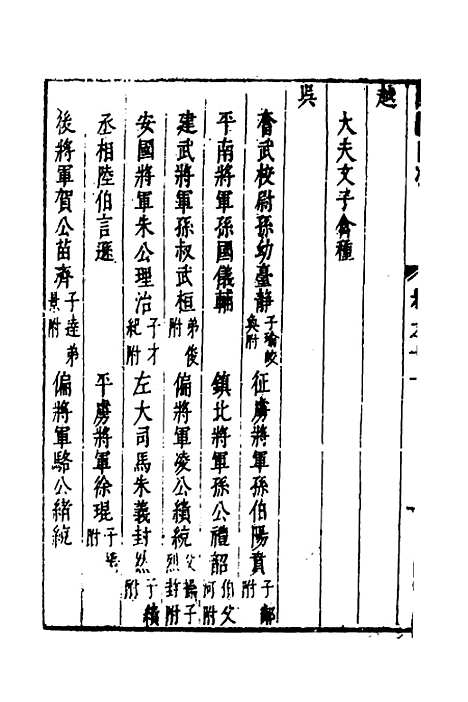 越
大夫文子禽種
吳
奮武校尉孫幼臺靜子瑜皎奐附
征虜將軍孫伯陽賁子鄰附
平南將軍孫國儀輔
鎮北將軍孫公禮韶伯父河附
建武將軍孫叔武桓弟俊附
偏將軍凌公績統父操子烈封附
安國將軍朱公理治子才紀附
左大司馬朱義封然子績附
丞相陸伯言遜
平虜將軍徐琨子矯附
後將軍賀公苗齊子達弟景附
偏將軍駱公緒統